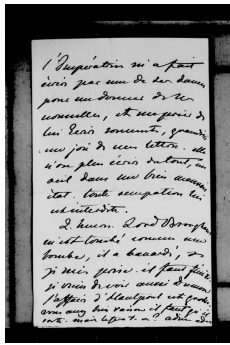 l'Impératrice m'a fait
écrire par une de ses dames
pour me donner de ses
nouvelles, et me prier de
lui écrire souvent, grande
joie de mes lettres. elle
n'ose plus écrire du tout,
est dans un très mauvais
état. toute occupation lui
est interdite.
2 heures. Lord Brougham
m'est tombé comme une
bombe, il a bavardé, et
je suis pressée. il faut finir
je viens de voir aussi
l'affaire d'Hautpoul est
vous avez bien raison il faut
mais adieu